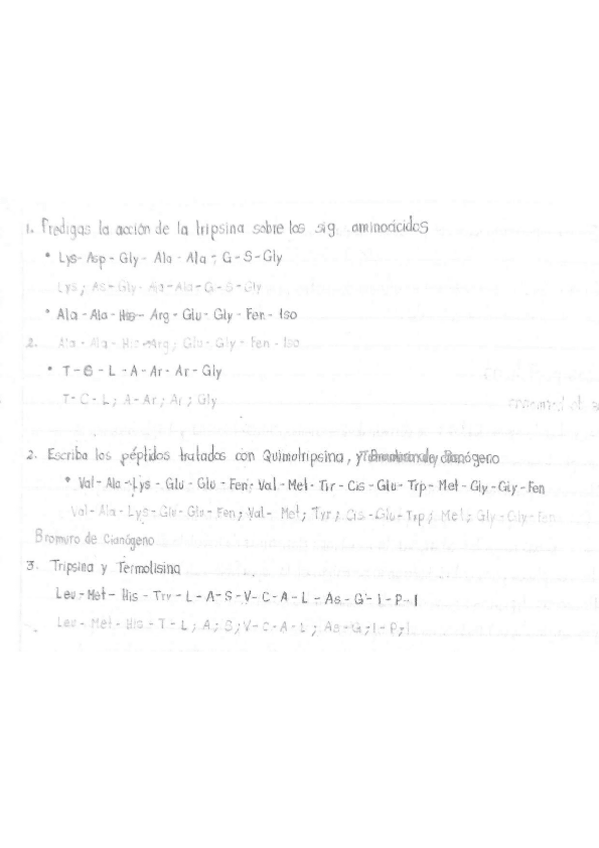 1. Predigas la acción de la tripsina sobre los sig. aminoácidos
• Lys-Asp-Gly-Ala-Ala-G-S-Gly
Lys; As-Gly-Aja-Ala-G-S-Gly
• Ala-Ala-His-Arg-Glu-Gly-Fen-Iso
2. Ala-Ala-His-Arg; Glu-Gly-Fen-Iso
• T-C-L-A-Ar-Ar-Gly
T-C-L; A-Ar; Ar; Gly
2. Escriba los péptidos tratados con Quimotripsina, y cianógeno
• Val-Ala-Lys-Glu-Glu-Fen-Val-Met-Tir-Cis-Glu-Trp-Met-Gly-Gly-Fen
Val-Ala-Lys-Glu-Glu-Fen; Val-Met; Tyr; Cis-Glu-Trp; Met; Gly-Gly-Fen
Bromuro de Cianógeno
3. Tripsina y Termolisina
Leu-Met-His-Trv-L-A-S-V-C-A-L-As-G-I-P-I
Leu-Met-His-T-L; A; S; V-C-A-L; As-G; I-P; I